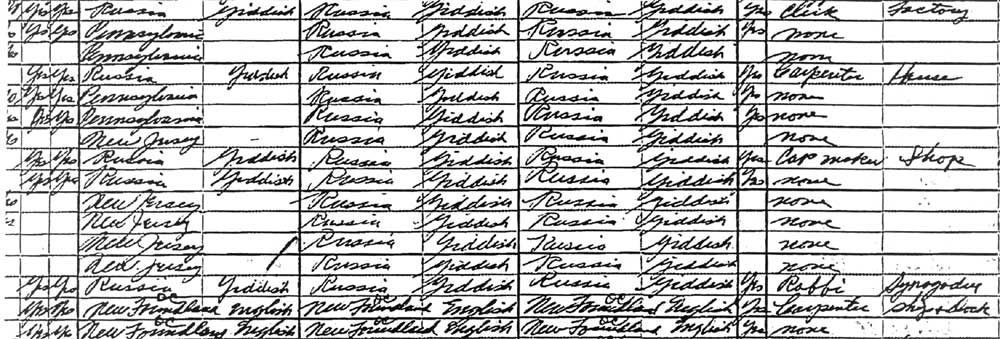 Yes Yes Russia Yiddish Russia Yiddish Russia Yiddish Yes Clerk Factory
Yes Yes Pennsylvania Russia Yiddish Russia Yiddish Yes none
Pennsylvania Russia Yiddish Russia Yiddish none
Yes Yes Russia Yiddish Russia Yiddish Russia Yiddish Yes Carpenter House
Yes Yes Pennsylvania Russia Yiddish Russia Yiddish Yes none
Yes Yes Pennsylvania Russia Yiddish Russia Yiddish Yes none
New Jersey - Russia Yiddish Russia Yiddish none
Yes Yes Russia Yiddish Russia Yiddish Russia Yiddish Yes Cap maker Shop
Yes Yes Russia Yiddish Russia Yiddish Russia Yiddish Yes none
New Jersey Russia Yiddish Russia Yiddish none
New Jersey Russia Yiddish Russia Yiddish none
New Jersey Russia Yiddish Russia Yiddish none
New Jersey Russia Yiddish Russia Yiddish none
Yes Yes Russia Yiddish Russia Yiddish Russia Yiddish Yes Rabbi Synogogue
Yes Yes New Foundland English New Foundland English New Foundland English Yes Carpenter
Yes Yes New Foundland English New Foundland English New Foundland English Yes none